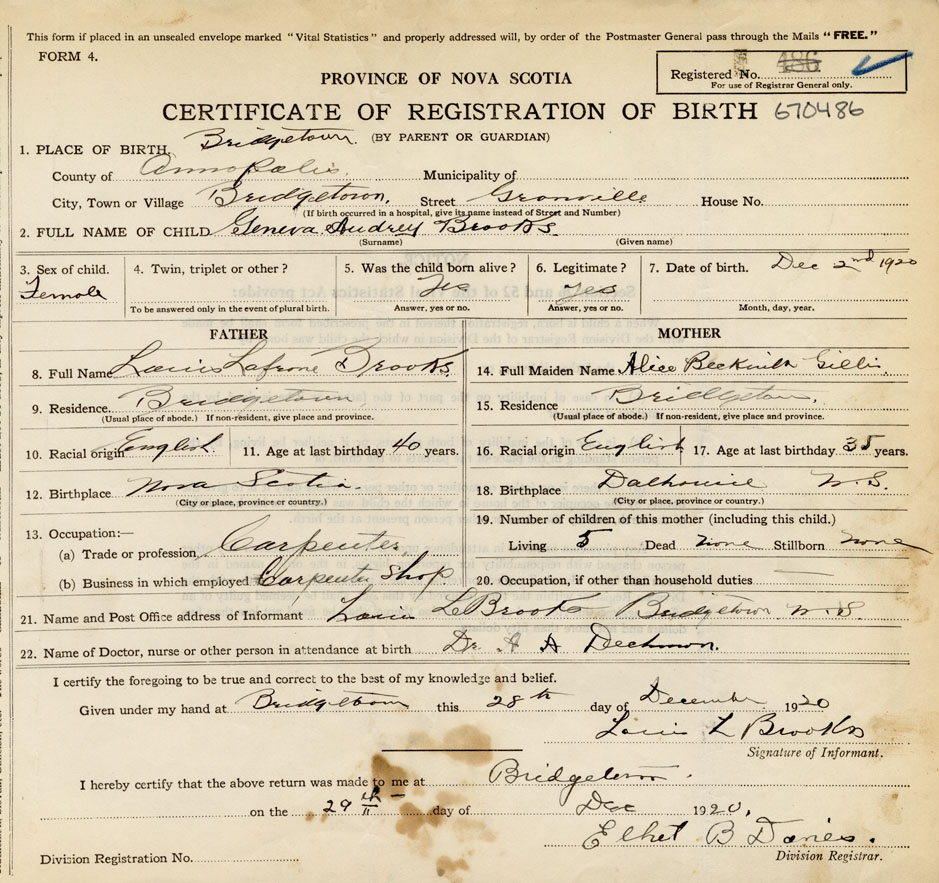 This form if placed in an unsealed envelope marked "Vital Statistics" and properly addressed will, by order of the Postmaster General pass through the Mails "FREE."
FORM 4.
Registered No. 486
For use of Registrar General only.
PROVINCE OF NOVA SCOTIA
CERTIFICATE OF REGISTRATION OF BIRTH 670486
(BY PARENT OR GUARDIAN)
1. PLACE OF BIRTH, Bridgetown.
County of Annapolis. Municipality of
City, Town or Village Bridgetown. Street Granville House No.
(If birth occurred in a hospital, give its name instead of Street and Number)
2. FULL NAME OF CHILD Geneva Audrey Brooks
(Surname) (Given name)
3. Sex of child. Female
4. Twin, triplet or other?
To be answered only in the event of plural birth.
5. Was the child born alive? Yes
Answer, yes or no.
6. Legitimate? Yes
Answer, yes or no.
7. Date of birth. Dec 2nd 1920
Month, day, year.
FATHER
8. Full Name Brooks
9. Residence. Bridgetown
(Usual place of abode.) If non-resident, give place and province.
10. Racial origin English. 11. Age at last birthday 40 years.
12. Birthplace Nova Scotia.
(City or place, province or country.)
13. Occupation:—
(a) Trade or profession Carpenter
(b) Business in which employed Carpenter Shop
MOTHER
14. Full Maiden Name Alice Beckwith Gillis
15. Residence Bridgetown.
(Usual place of abode.) If non-resident, give place and province.
16. Racial origin English 17. Age at last birthday 35 years.
18. Birthplace Dalhousie N.S.
(City or place, province or country.)
19. Number of children of this mother (including this child.)
Living 5 Dead none Stillborn none
20. Occupation, if other than household duties
21. Name and Post Office address of Informant L Brooks Bridgetown N.S.
22. Name of Doctor, nurse or other person in attendance at birth Dr. A A Dechman.
I certify the foregoing to be true and correct to the best of my knowledge and belief.
Given under my hand at Bridgetown this 28th day of December 1920
L Brooks
Signature of Informant.
I hereby certify that the above return was made to me at Bridgetown.
on the 29th day of Dec 1920.
B Davies.
Division Registrar.
Division Registration No.